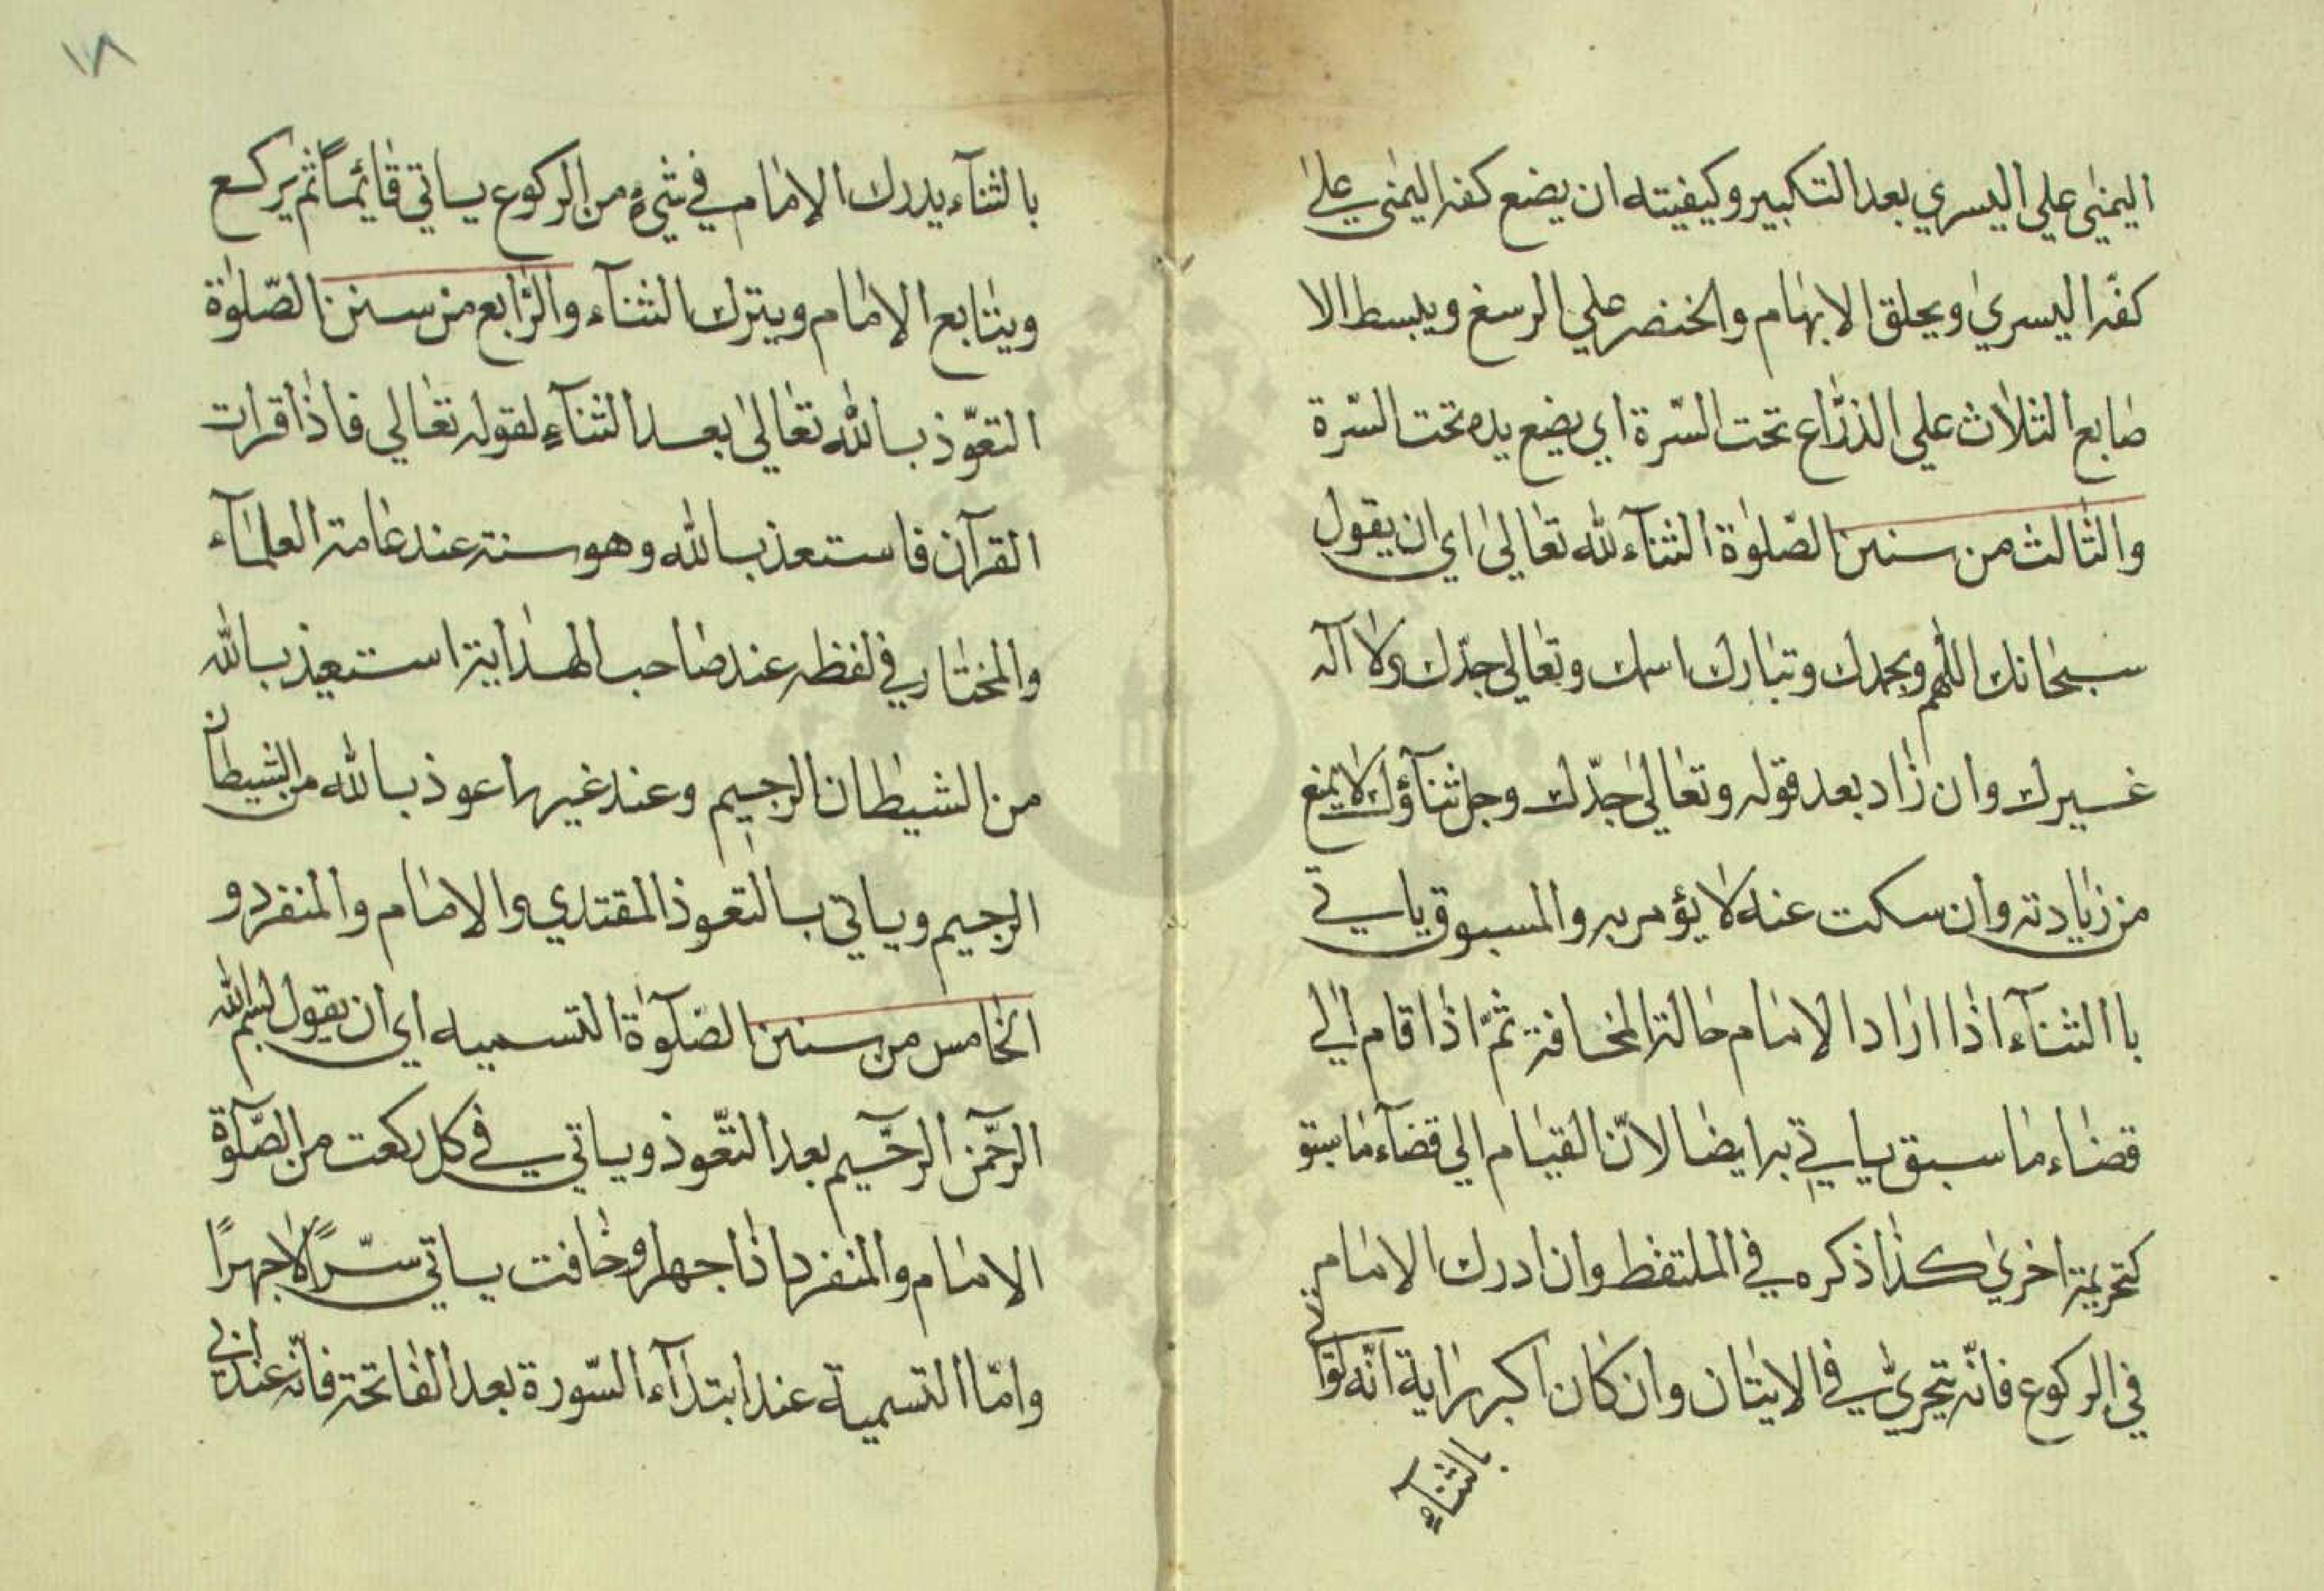 اليمنى علي اليسري بعد التكبير وكيفيته ان يضع كفه اليمنى على
كفّه اليسرى ويحلق الابهام والخنصر علي الرسغ ويبسط الا
صابع الثلاث على الذراع تحت السّرة اي يضع يده تحت السّرة
والثالث من سنن الصّلوة الثنآء لله تعالى اي ان يقول
سبحانك اللهم وبحمدك وتبارك اسمك وتعالى جدّك ولا اله
غيرك وان زاد بعد قوله وتعالى جدّك وجل ثناؤك لا يمنع
من زيادته وان سكت عنه لا يؤمر به والمسبوق ياتي
باالثنآء اذا اراد الامام حالة المخافة ثمّ اذا قام الي
قضاء ما سبق ياتي به ايضا لانّ القيام الى قضآء ما سبق
كتحريمة اخرى كذا ذكره في الملتقط وان ادرك الامام
في الركوع فانّه يتحرىّ في الايتان وان كان اكبر رايه انّه لو اتى
بالثنآء
١٨
بالثنآء يدرك الامام في شيء من الركوع ياتي قائماً ثم يركع
ويتابع الامام ويترك الثنآء والرابع من سنن الصّلوة
التعوّذ بالله تعالى بعد الثنآء لقوله تعالي فاذا قرات
القرآن فاستعذ بالله وهو سنة عند عامة العلمآء
والمختار في لفظه عند صاحب الهداية استعيذ بالله
من الشيطان الرجيم وعند غيرها اعوذ بالله من الشيطان
الرجيم وياتي بالتعوذ المقتدي والامام والمنفرد و
الخامس من سنن الصّلوة التسميه اي ان يقول بسم الله
الرحمن الرحيم بعد التعّوذ وياتي في كل ركعت من الصّلوة
الامام والمنفرد اذا جهر او خافت ياتي سّراً لا جهراً
وامّا التسمية عند ابتدآء السّورة بعد الفاتحة فانّه عند ابي